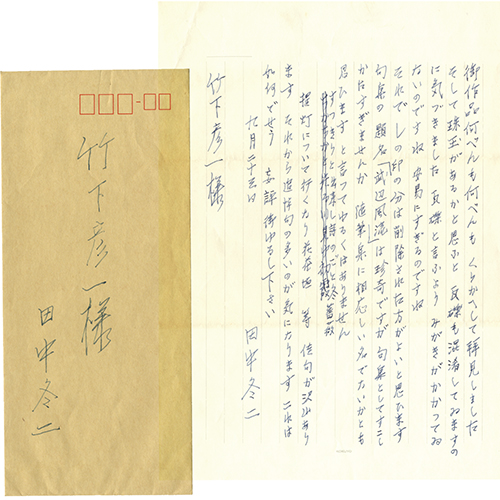 竹下彦一様
田中冬二
御作品何べんも何べんも くりかへして拝見しました
そして珠玉があるかと思ふと 瓦礫も混淆してゐますの
に気づきました 瓦礫と言ふより みがきがかかつてゐ
ないのですね 安易にすぎるのですね
それで レの印の分は削除された方がよいと思ひます
句集の題名「武辺風流」は珍奇ですが 句集としてすこし
かたすぎませんか 随筆集に相応しい名でないかとも
思ひます と言つてわるくはありません
すつきりと
提灯について行くなり 等 佳句が沢山あり
ます それから追悼句の多いのが気になります これは
如何でせう 妄評御ゆるし下さい
九月二十三日
田中冬二
竹下彦一様